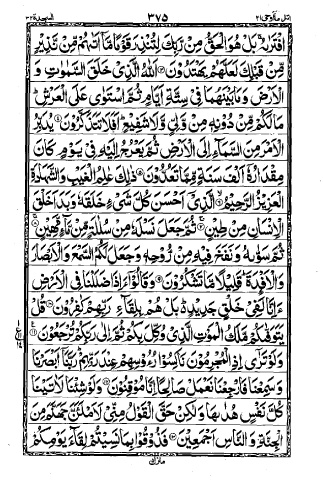 اتل ماأوحى٢١ ٣٧٥ السجدة٣٢
افْتَرٰىهُ ۚ بَلْ هُوَ الْحَقُّ مِنْ رَّبِّكَ لِتُنْذِرَ قَوْمًا مَّاۤ اَتٰىهُمْ مِّنْ نَّذِيْرٍ
مِّنْ قَبْلِكَ لَعَلَّهُمْ يَهْتَدُوْنَ ۝ اَللّٰهُ الَّذِيْ خَلَقَ السَّمٰوٰتِ وَ
الْاَرْضَ وَمَا بَيْنَهُمَا فِيْ سِتَّةِ اَيَّامٍ ثُمَّ اسْتَوٰى عَلَى الْعَرْشِ ؕ
مَا لَكُمْ مِّنْ دُوْنِهٖ مِنْ وَّلِيٍّ وَّلَا شَفِيْعٍ ؕ اَفَلَا تَتَذَكَّرُوْنَ ۝ يُدَبِّرُ
الْاَمْرَ مِنَ السَّمَآءِ اِلَى الْاَرْضِ ثُمَّ يَعْرُجُ اِلَيْهِ فِيْ يَوْمٍ كَانَ
مِقْدَارُهٗۤ اَلْفَ سَنَةٍ مِّمَّا تَعُدُّوْنَ ۝ ذٰلِكَ عٰلِمُ الْغَيْبِ وَالشَّهَادَةِ
الْعَزِيْزُ الرَّحِيْمُ ۝ الَّذِيْۤ اَحْسَنَ كُلَّ شَيْءٍ خَلَقَهٗ وَبَدَاَ خَلْقَ
الْاِنْسَانِ مِنْ طِيْنٍ ۝ ثُمَّ جَعَلَ نَسْلَهٗ مِنْ سُلٰلَةٍ مِّنْ مَّآءٍ مَّهِيْنٍ ۝
ثُمَّ سَوّٰىهُ وَنَفَخَ فِيْهِ مِنْ رُّوْحِهٖ وَجَعَلَ لَكُمُ السَّمْعَ وَالْاَبْصَارَ
وَالْاَفْـِٕدَةَ ؕ قَلِيْلًا مَّا تَشْكُرُوْنَ ۝ وَقَالُوْۤا ءَاِذَا ضَلَلْنَا فِي الْاَرْضِ
ءَاِنَّا لَفِيْ خَلْقٍ جَدِيْدٍ ؕ بَلْ هُمْ بِلِقَآءِ رَبِّهِمْ كٰفِرُوْنَ ۝ قُلْ
يَتَوَفّٰىكُمْ مَّلَكُ الْمَوْتِ الَّذِيْ وُكِّلَ بِكُمْ ثُمَّ اِلٰى رَبِّكُمْ تُرْجَعُوْنَ ۝
وَلَوْ تَرٰۤى اِذِ الْمُجْرِمُوْنَ نَاكِسُوْا رُءُوْسِهِمْ عِنْدَ رَبِّهِمْ ؕ رَبَّنَاۤ اَبْصَرْنَا
وَسَمِعْنَا فَارْجِعْنَا نَعْمَلْ صَالِحًا اِنَّا مُوْقِنُوْنَ ۝ وَلَوْ شِئْنَا لَاٰتَيْنَا
كُلَّ نَفْسٍ هُدٰىهَا وَلٰكِنْ حَقَّ الْقَوْلُ مِنِّيْ لَاَمْلَـَٔنَّ جَهَنَّمَ مِنَ
الْجِنَّةِ وَالنَّاسِ اَجْمَعِيْنَ ۝ فَذُوْقُوْا بِمَا نَسِيْتُمْ لِقَآءَ يَوْمِكُمْ
منزل٥